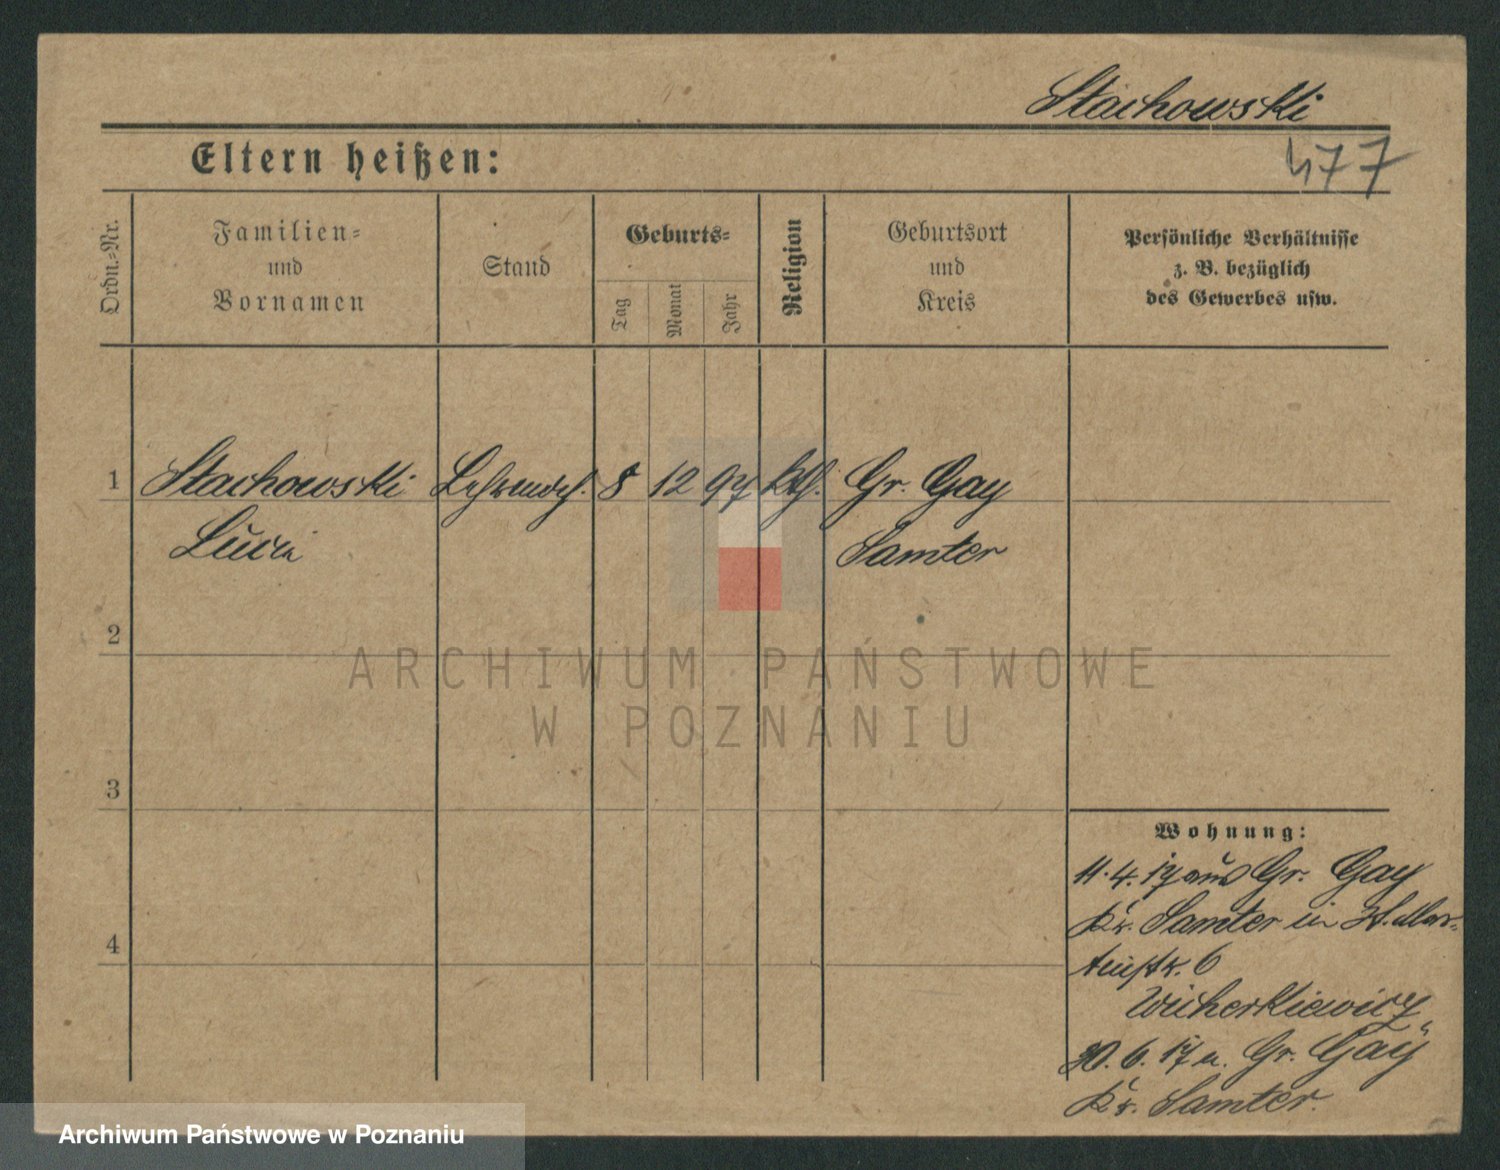 Stachowski
Eltern heißen:
477
Ordn.-Nr.
Familien-
und
Vornamen
Stand
Geburts-
Tag
Monat
Jahr
Religion
Geburtsort
und
Kreis
Persönliche Verhältnisse
z. B. bezüglich
des Gewerbes usw.
1
Stachowski
8
12
97
kth.
Gr. Gay
Lucia
Samter
2
ARCHIWUM PAŃSTWOWE
W POZNANIU
3
Wohnung:
11.4.17 aus Gr. Gay
Kr. Samter in St. Mar-
tinstr. 6
Wicherkiewicz
30.6.17 n. Gr. Gay
Kr. Samter.
4
Archiwum Państwowe w Poznaniu